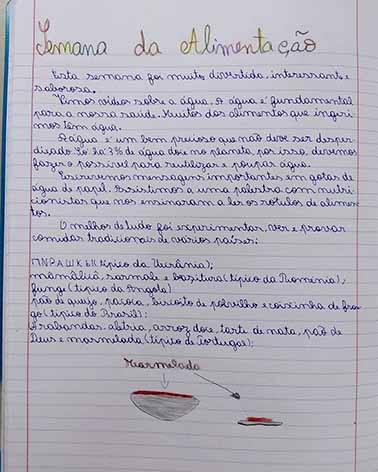 Semana da Alimentação
Esta semana foi muito divertida, interessante e
saborosa.
Vimos vídeos sobre a água. A água é fundamental
para a nossa saúde. Muitos dos alimentos que ingeri-
mos têm água.
A água é um bem precioso que não deve ser desper-
diçado. Só há 3% de água doce no planeta, por isso, devemos
fazer o possível para reutilizar e poupar água.
Escrevemos mensagens importantes em gotas de
água de papel. Assistimos a uma palestra com nutri-
cionistas que nos ensinaram a ler os rótulos de alimen-
tos.
O melhor de tudo foi experimentar, ver e provar
comidas tradicionais de vários países:
ПИРАШКЫ (típico da Ucrânia);
mămăligă, sarmale e (típico da Roménia);
funge (típico da Angola)
pão de queijo, paçoca, biscoito de polvilho e coxinha de fran-
go (típico do Brasil);
Arabandas. aletria, arroz doce, tarte de nata, pão de
Deus e marmelada (típico de Portugal);
Marmelada